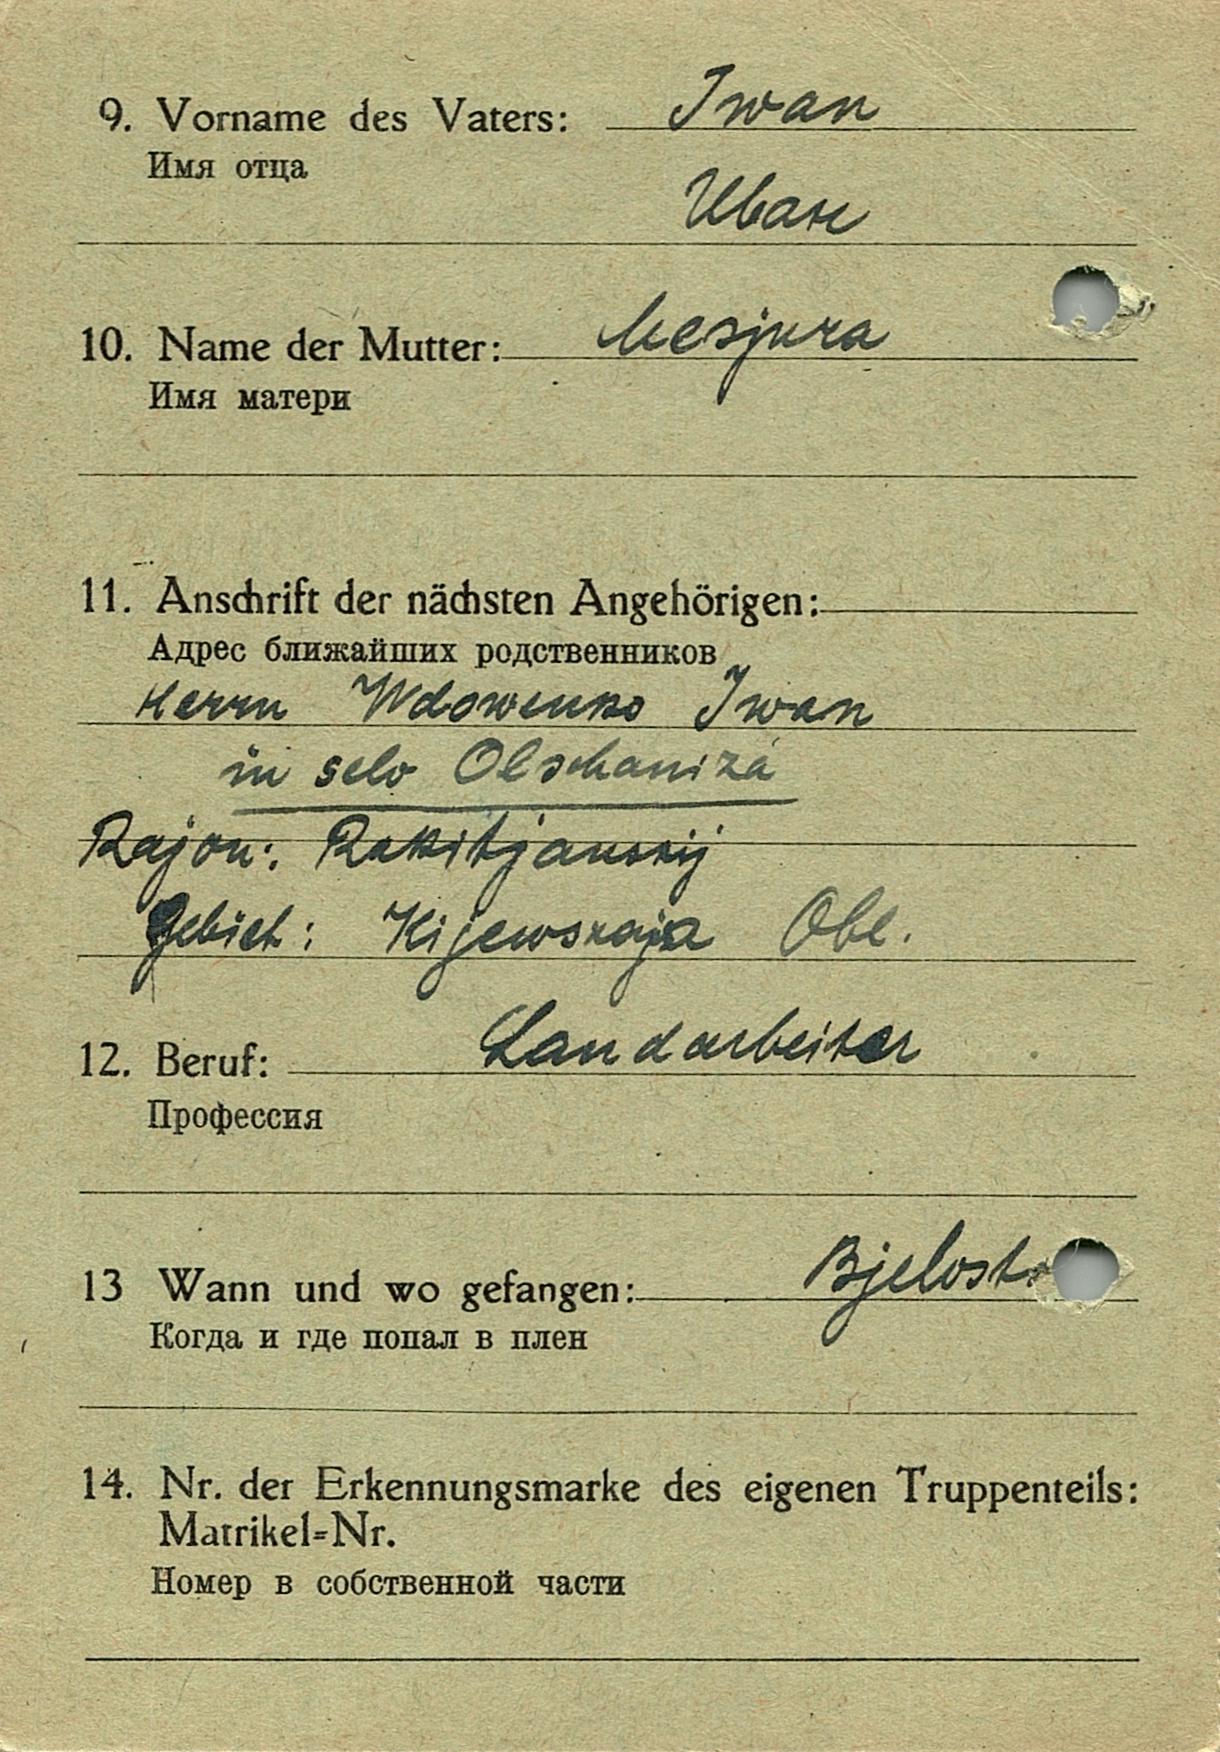 9. Vorname des Vaters: Iwan
Имя отца
Иван
10. Name der Mutter: Mesjura
Имя матери
11. Anschrift der nächsten Angehörigen:
Адрес ближайших родственников
Herrn Wdowenko Iwan
in selo Olschaniza
Rajon: Rakitjanskij
Gebiet: Kijewskaja Obl.
12. Beruf: Landarbeiter
Профессия
13 Wann und wo gefangen: Bjelosto
Когда и где попал в плен
14. Nr. der Erkennungsmarke des eigenen Truppenteils:
Matrikel=Nr.
Номер в собственной части